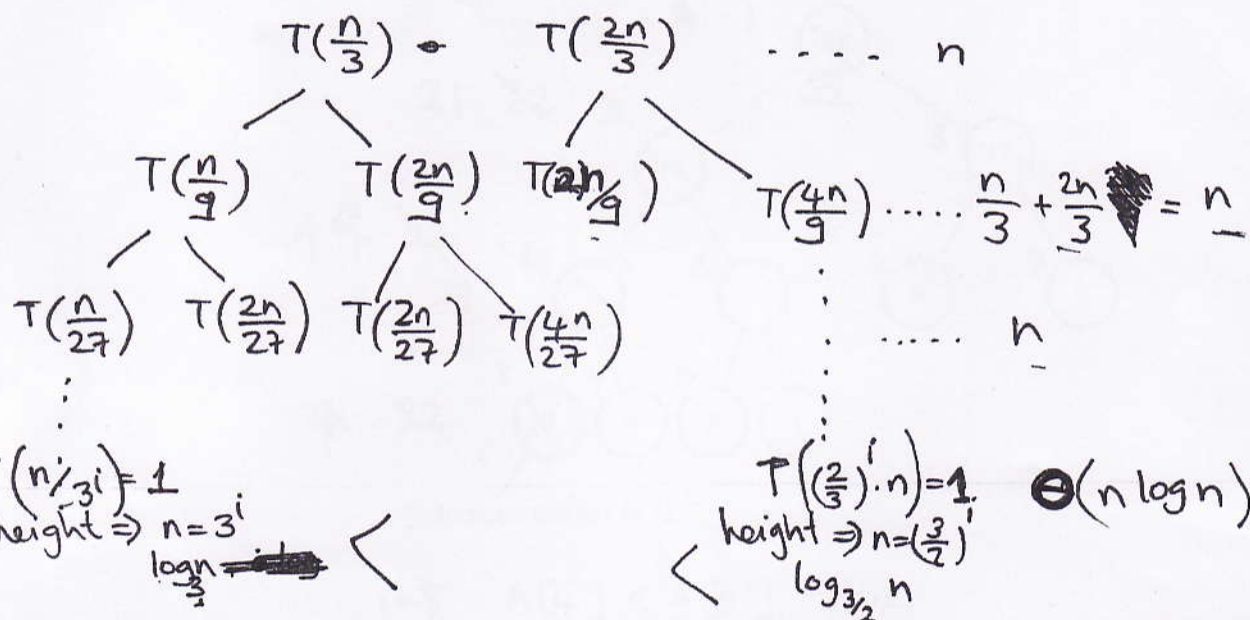 T(n/3) - T(2n/3) ..... n
T(n/9) T(2n/9) T(2n/9) T(4n/9) ..... n/3 + 2n/3 = n
T(n/27) T(2n/27) T(2n/27) T(4n/27) ..... n
(n/3^i) = 1
height ⇒ n = 3^i
log_3 n
<
T((2/3)^i · n) = 1. Θ(n log n)
height ⇒ n = (3/2)^i
< log_{3/2} n